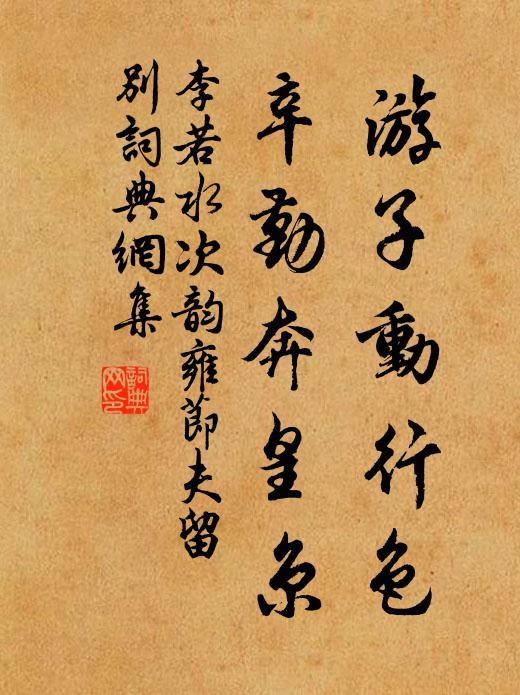 游子動行色
辛勤奔皇京
李若水次韵雍節夫留
別詞典網集
詞典
网印